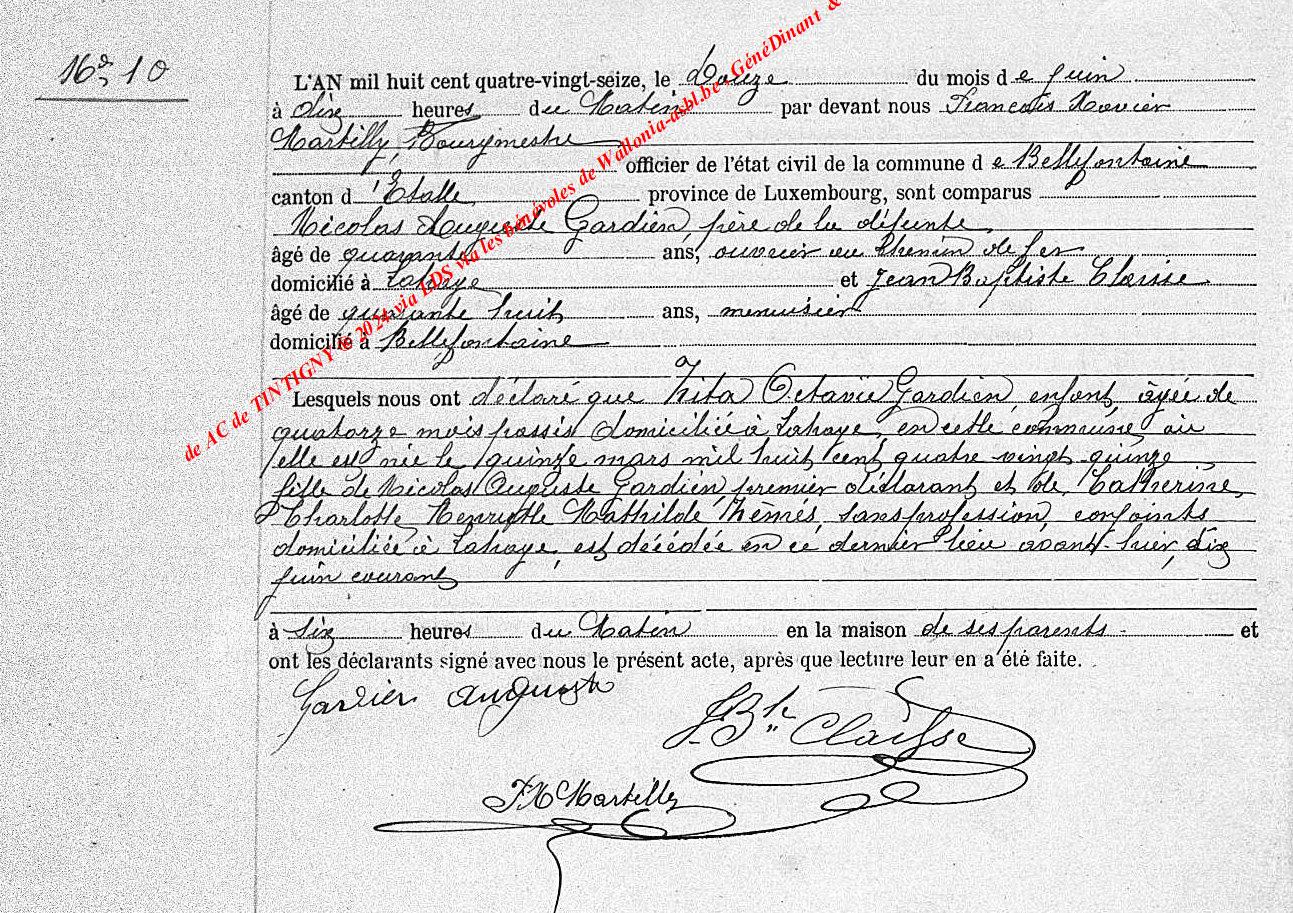 16e 10
L'AN mil huit cent quatre-vingt-seize, le douze du mois de Juin
à dix heures du Matin par devant nous François Xavier
Martilly, Bourgmestre
officier de l'état civil de la commune de Bellefontaine
canton d'Etalle province de Luxembourg, sont comparus
Nicolas Auguste Gardien, père de la défunte,
âgé de quarante ans, ouvrier au chemin de fer
domicilié à Lahaye et Jean Baptiste Claisse
âgé de quarante huit ans, menuisier
domicilié à Bellefontaine
Lesquels nous ont déclaré que Zita Octavie Gardien, enfant, âgée de
quatorze mois passés domiciliée à Lahaye, en cette commune, où
elle est née le quinze mars mil huit cent quatre vingt quinze
fille de Nicolas Auguste Gardien, premier déclarant et de Catherine,
Charlotte, Henriette Mathilde Thémés, sans profession, conjoints
domiciliée à Lahaye, est décédée en ce dernier lieu avant-hier, dix
juin courant
à six heures du Matin en la maison de ses parents - et
ont les déclarants signé avec nous le présent acte, après que lecture leur en a été faite.
Gardien auguste
J Bte Claisse
F X Martilly
de AC de TINTIGNY © 2024 via LDS via les bénévoles de Wallonia-asbl.be - GénéDinant &